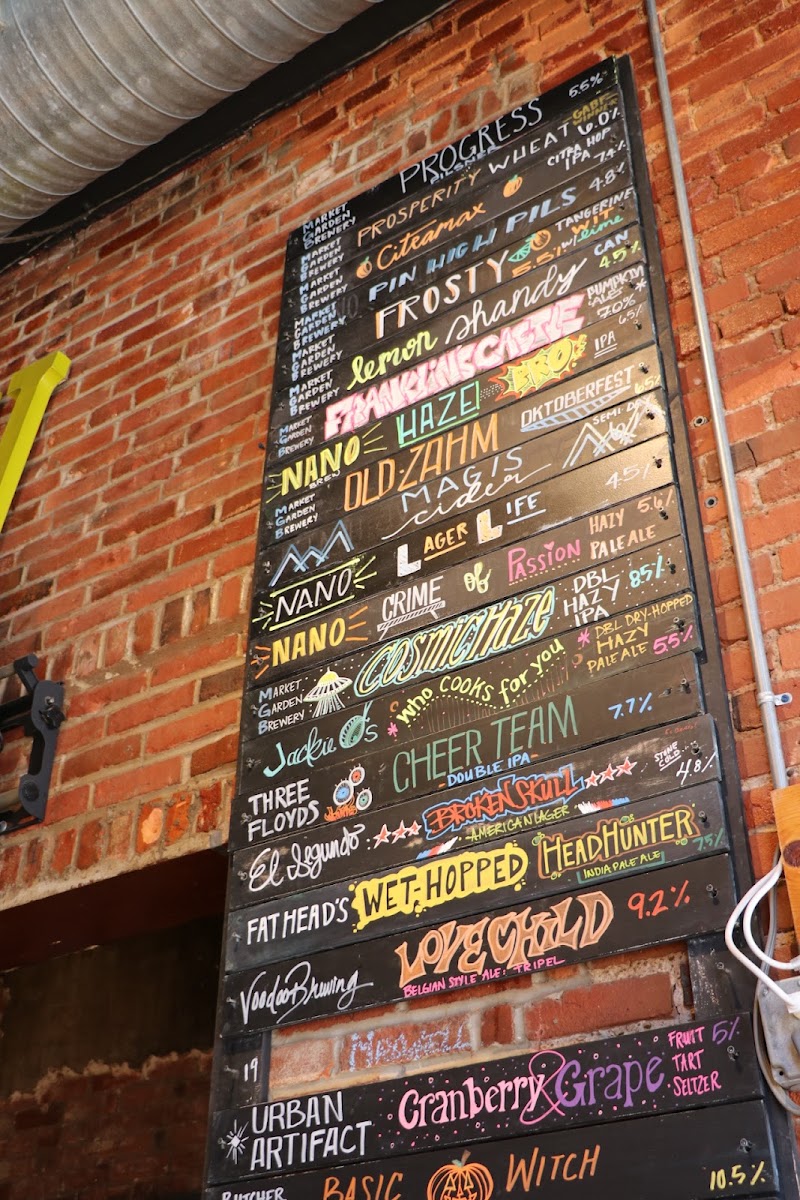 MARKET GARDEN BREWERY PROGRESS PILSNER 5.5%
MARKET GARDEN BREWERY PROSPERITY WHEAT 6.0%
MARKET GARDEN BREWERY Citramax CITRA HOP IPA 7.4%
MARKET GARDEN BREWERY PIN HIGH PILS 4.8%
MARKET GARDEN BREWERY FROSTY 5.5% TANGERINE WIT w/ lime
MARKET GARDEN BREWERY lemon shandy CAN 4.5%
MARKET GARDEN BREWERY FRANKLIN CASTLE PUMPKIN ALE* 7.0%
NANO BREW HAZE BRO IPA 6.5%
MARKET GARDEN BREWERY OLD ZAHM OKTOBERFEST 6.5%
MAGIS cider SEMI DRY
NANO LAGER LIFE 4.5%
NANO CRIME of PASSION HAZY PALE ALE 5.6%
MARKET GARDEN BREWERY COSMIC HAZE DBL HAZY IPA 8.5%
Jackie O's *WHO COOKS for you* DBL DRY-HOPPED HAZY PALE ALE 5.5%
THREE FLOYDS CHEER TEAM DOUBLE IPA 7.7%
El Segundo BROKEN SKULL AMERICAN LAGER STONE COLD 4.8%
FAT HEAD'S WET-HOPPED HEADHUNTER INDIA PALE ALE 7.5%
Voodoo Brewing LOVE CHILD BELGIAN STYLE ALE: TRIPEL 9.2%
19
URBAN ARTIFACT Cranberry & Grape FRUIT TART SELTZER 5%
BUTCHER BASIC WITCH 10.5%